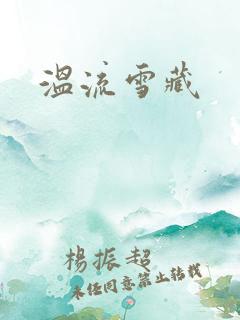 温流雪藏
楊振超
未任同意禁止转载